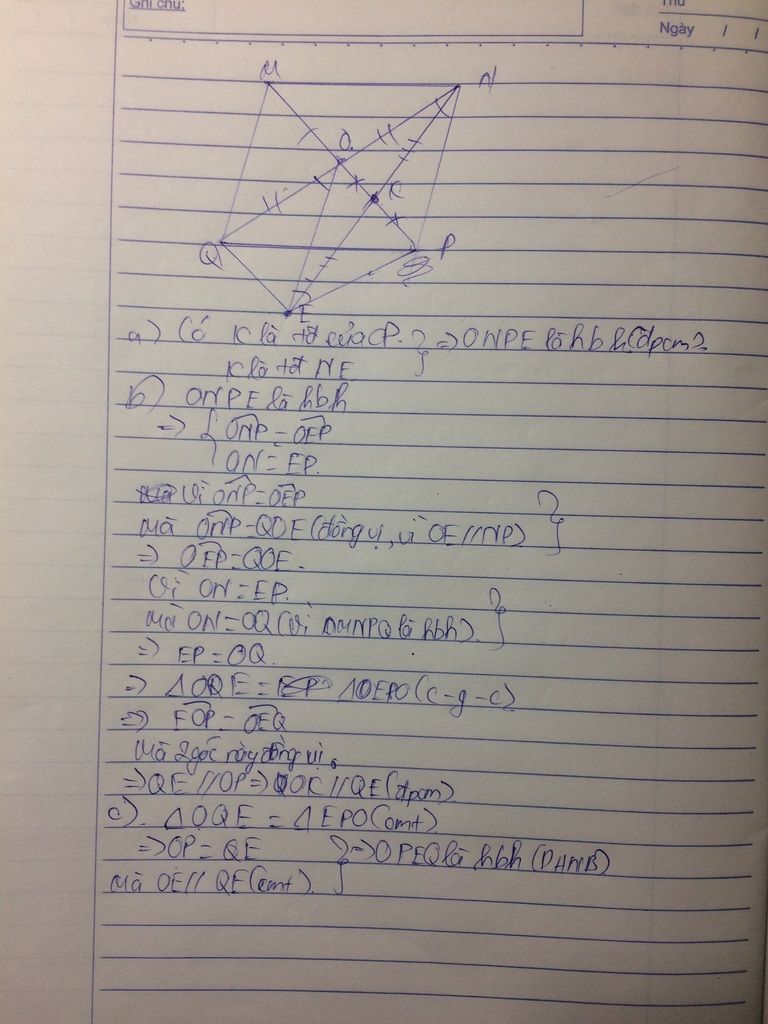 Ghi chú:
Thứ
Ngày / /
M N
O
K
Q P
E
a) Có K là tđ của OP. } => ONPE là hbh (đpcm)
K là tđ NE
b) ONPE là hbh
=> { ONP = OEP
ON = EP.
Vì ONP = OEP
mà ONP = QOE (đồng vị, vì OE // NP) }
=> OEP = QOE.
Vì ON = EP.
mà ON = OQ (vì MNPQ là hbh). }
=> EP = OQ.
=> Δ OQE = Δ EPO (c-g-c)
=> EOP = OEQ
mà 2 góc này đồng vị.
=> QE // OP => OK // QE (đpcm)
c). Δ OQE = Δ EPO (cmt)
=> OP = QE } => OPEQ là hbh (DHNB)
mà OE // QE (cmt).